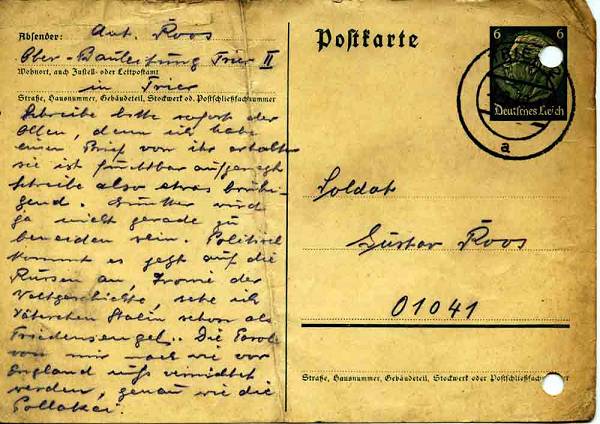 Absender: Ant. Roos
Ober-Bauleitung Trier II
Wohnort, auch Zustell- oder Leitpostamt
in Trier
Straße, Hausnummer, Gebäudeteil, Stockwerk od. Postschließfachnummer
Schreibe bitte sofort der
Alten, denn ich habe
einen Brief von ihr erhalten
sie ist furchtbar aufgeregt
schreibe also etwas beruhi-
gend. wird
ja nicht gerade zu
beneiden sein. Politisch
kommt es jetzt auf die
Russen an, Ironie der
Weltgeschichte, sehe ich
Väterchen Stalin schon als
Friedensengel.. Die Parole
von mir nach wie vor
England muss vernichtet
werden, genau wie die
Pollakei.
Postkarte
6 6
Deutsches Reich
a
Soldat
Gustav Roos
01041
Straße, Hausnummer, Gebäudeteil, Stockwerk oder Postschließfachnummer